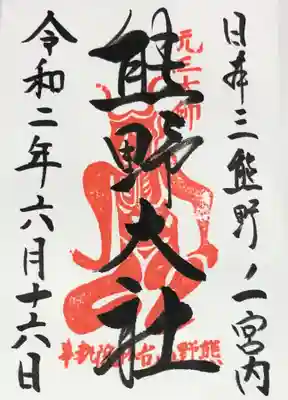 日本三熊野ノ一宮内
熊野大社
令和二年六月十六日
元三大師